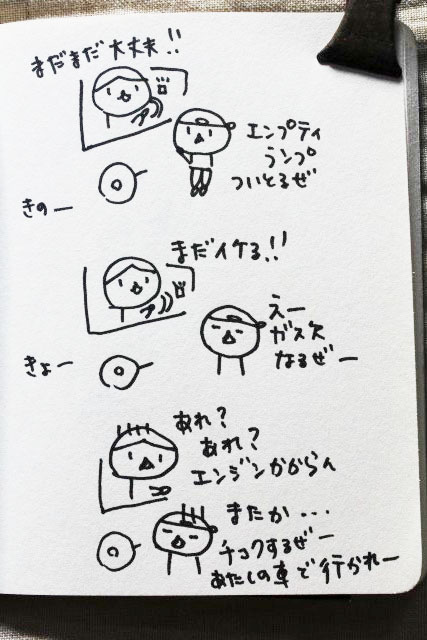 まだまだ大丈夫!!
エンプティ
ランプ
ついとるぜ
きのー
まだイケる!!
えー
ガス欠
なるぜー
きょー
あれ?
あれ?
エンジンかからん
またか...
チコクするぜー
あたしの車で行かれー